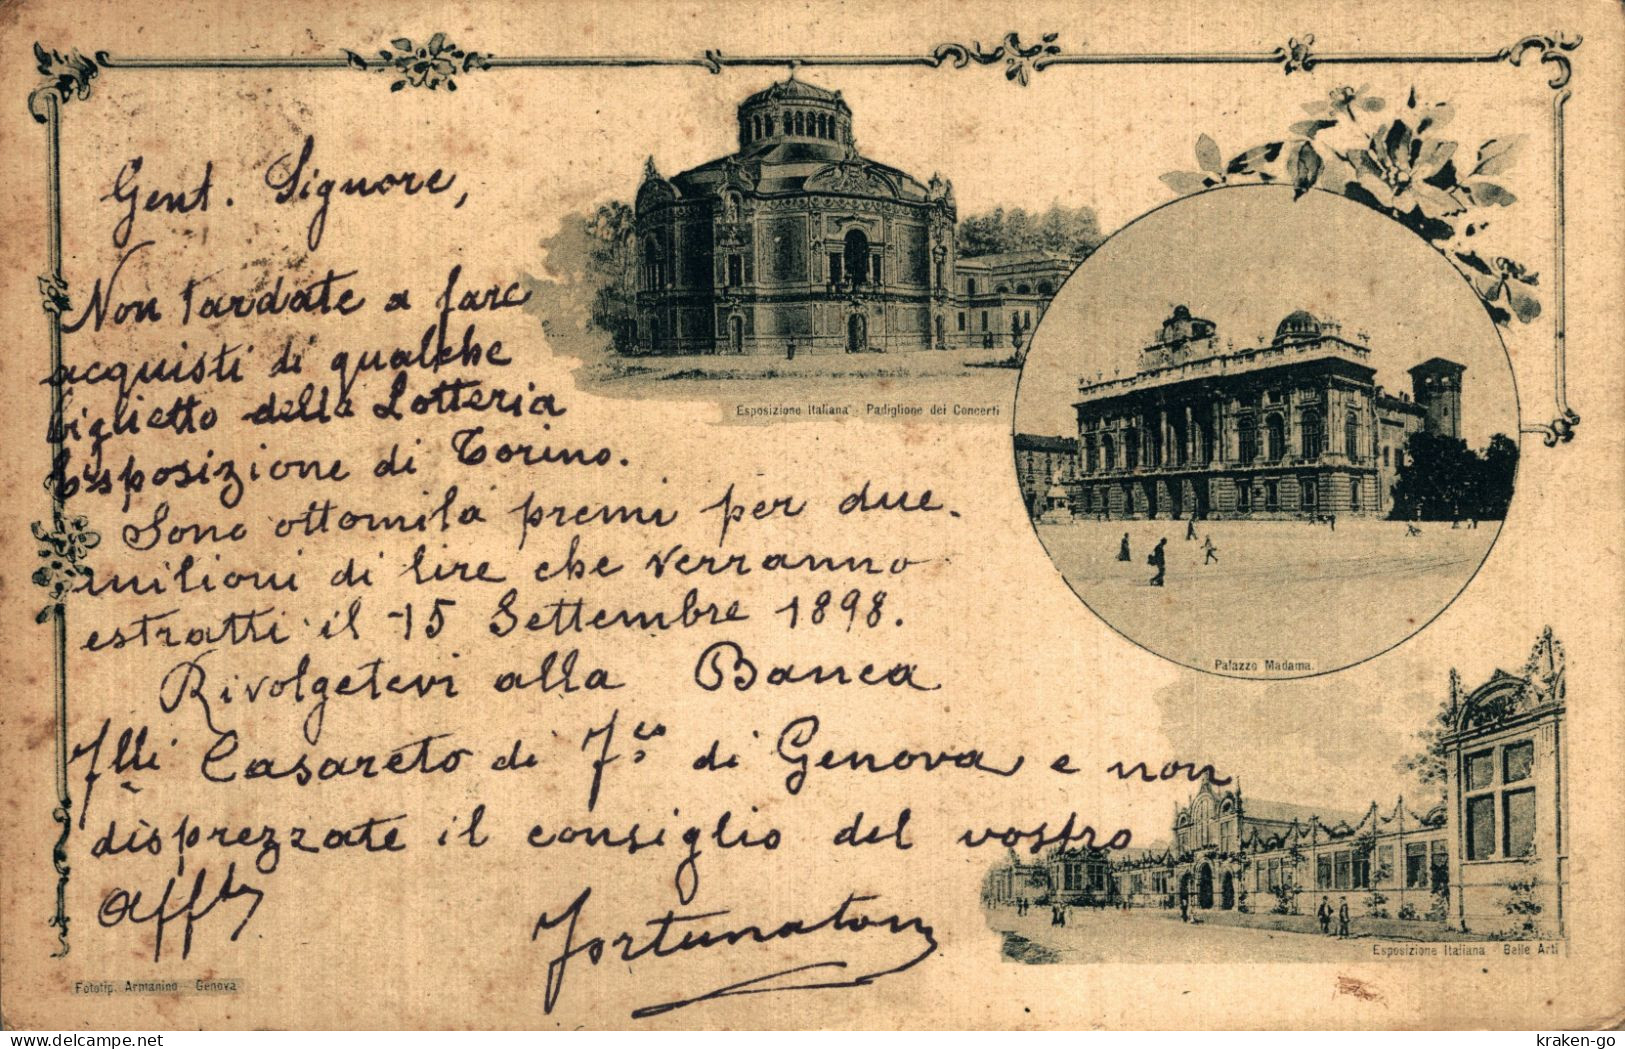 Gent. Signore,
Non tardate a fare
acquisti di qualche
biglietto della Lotteria
Esposizione di Torino.
Sono ottomila premi per due
milioni di lire che verranno
estratti il 15 Settembre 1898.
Rivolgetevi alla Banca
Flli Casareto di F.co di Genova e non
disprezzate il consiglio del vostro
Aff
Esposizione Italiana - Padiglione dei Concerti
Palazzo Madama.
Esposizione Italiana Belle Arti
Fototip. Armanino - Genova
kraken-go